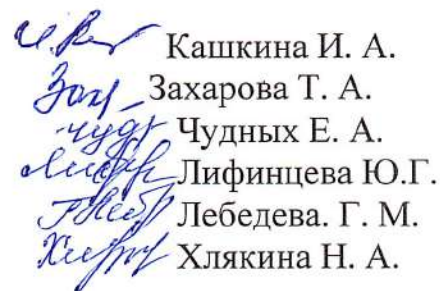 Кашкина И. А.
Захарова Т. А.
Чудных Е. А.
Лифинцева Ю.Г.
Лебедева. Г. М.
Хлякина Н. А.